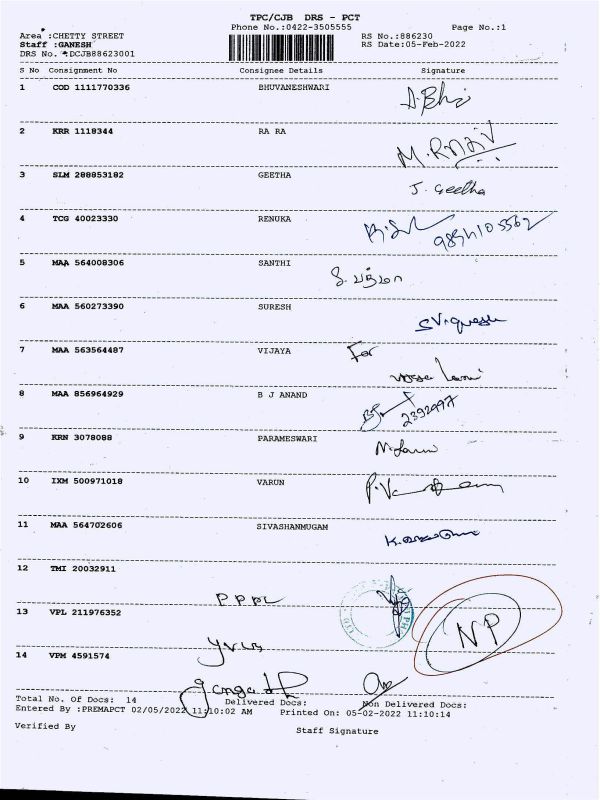 TPC/CJB DRS - PCT
Phone No.:0422-3505555 Page No.:1
Area :CHETTY STREET RS No.:886230
Staff :GANESH RS Date:05-Feb-2022
DRS No. :DCJB88623001
S No Consignment No Consignee Details Signature
1 COD 1111770336 BHUVANESHWARI A.Bhi
2 KRR 1118344 RA RA
3 SLM 288853182 GEETHA J. Geetha
4 TCG 40023330 RENUKA
5 MAA 564008306 SANTHI
6 MAA 560273390 SURESH
7 MAA 563564487 VIJAYA For
8 MAA 856964929 B J ANAND
9 KRN 3078088 PARAMESWARI
10 IXM 500971018 VARUN
11 MAA 564702606 SIVASHANMUGAM
12 TMI 20032911
PPPL
13 VPL 211976352 NP
14 VPM 4591574
Total No. Of Docs: 14 Delivered Docs: Non Delivered Docs:
Entered By :PREMAPCT 02/05/2022 11:10:02 AM Printed On: 05-02-2022 11:10:14
Verified By Staff Signature